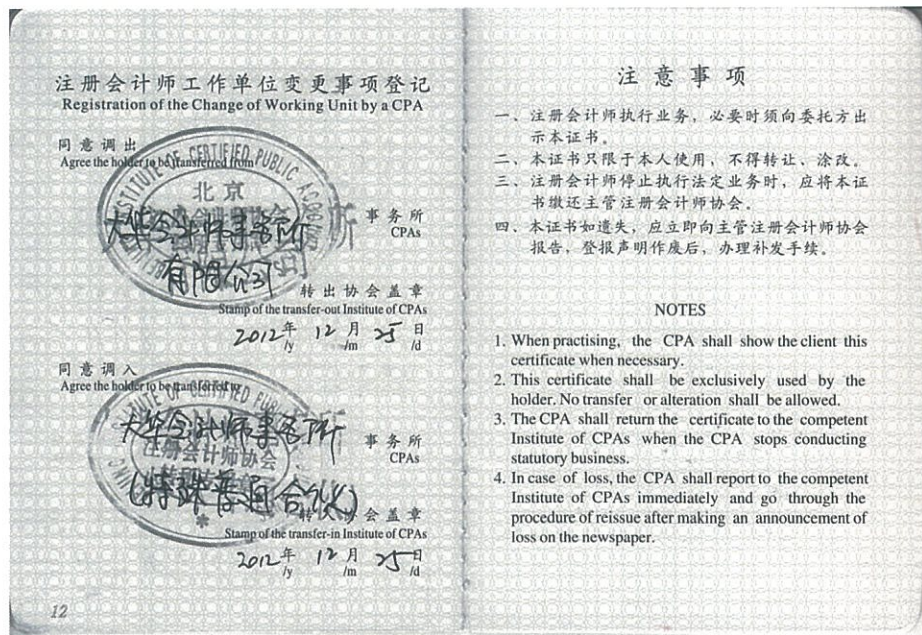 注册会计师工作单位变更事项登记
Registration of the Change of Working Unit by a CPA
同意调出
Agree the holder to be transferred from
INSTITUTE OF CERTIFIED PUBLIC
北京
大华会计师事务所
有限公司
事务所
CPAs
转出协会盖章
Stamp of the transfer-out Institute of CPAs
2012年 12月 25日
/y /m /d
同意调入
Agree the holder to be transferred to
OF CERTIFIED PUBLIC
大华会计师事务所
注册会计师协会
(特殊普通合伙)
事务所
CPAs
转入协会盖章
Stamp of the transfer-in Institute of CPAs
2012年 12月 25日
/y /m /d
12
注意事项
一、注册会计师执行业务，必要时须向委托方出
示本证书。
二、本证书只限于本人使用，不得转让、涂改。
三、注册会计师停止执行法定业务时，应将本证
书缴还主管注册会计师协会。
四、本证书如遗失，应立即向主管注册会计师协会
报告，登报声明作废后，办理补发手续。
NOTES
1. When practising, the CPA shall show the client this
certificate when necessary.
2. This certificate shall be exclusively used by the
holder. No transfer or alteration shall be allowed.
3. The CPA shall return the certificate to the competent
Institute of CPAs when the CPA stops conducting
statutory business.
4. In case of loss, the CPA shall report to the competent
Institute of CPAs immediately and go through the
procedure of reissue after making an announcement of
loss on the newspaper.